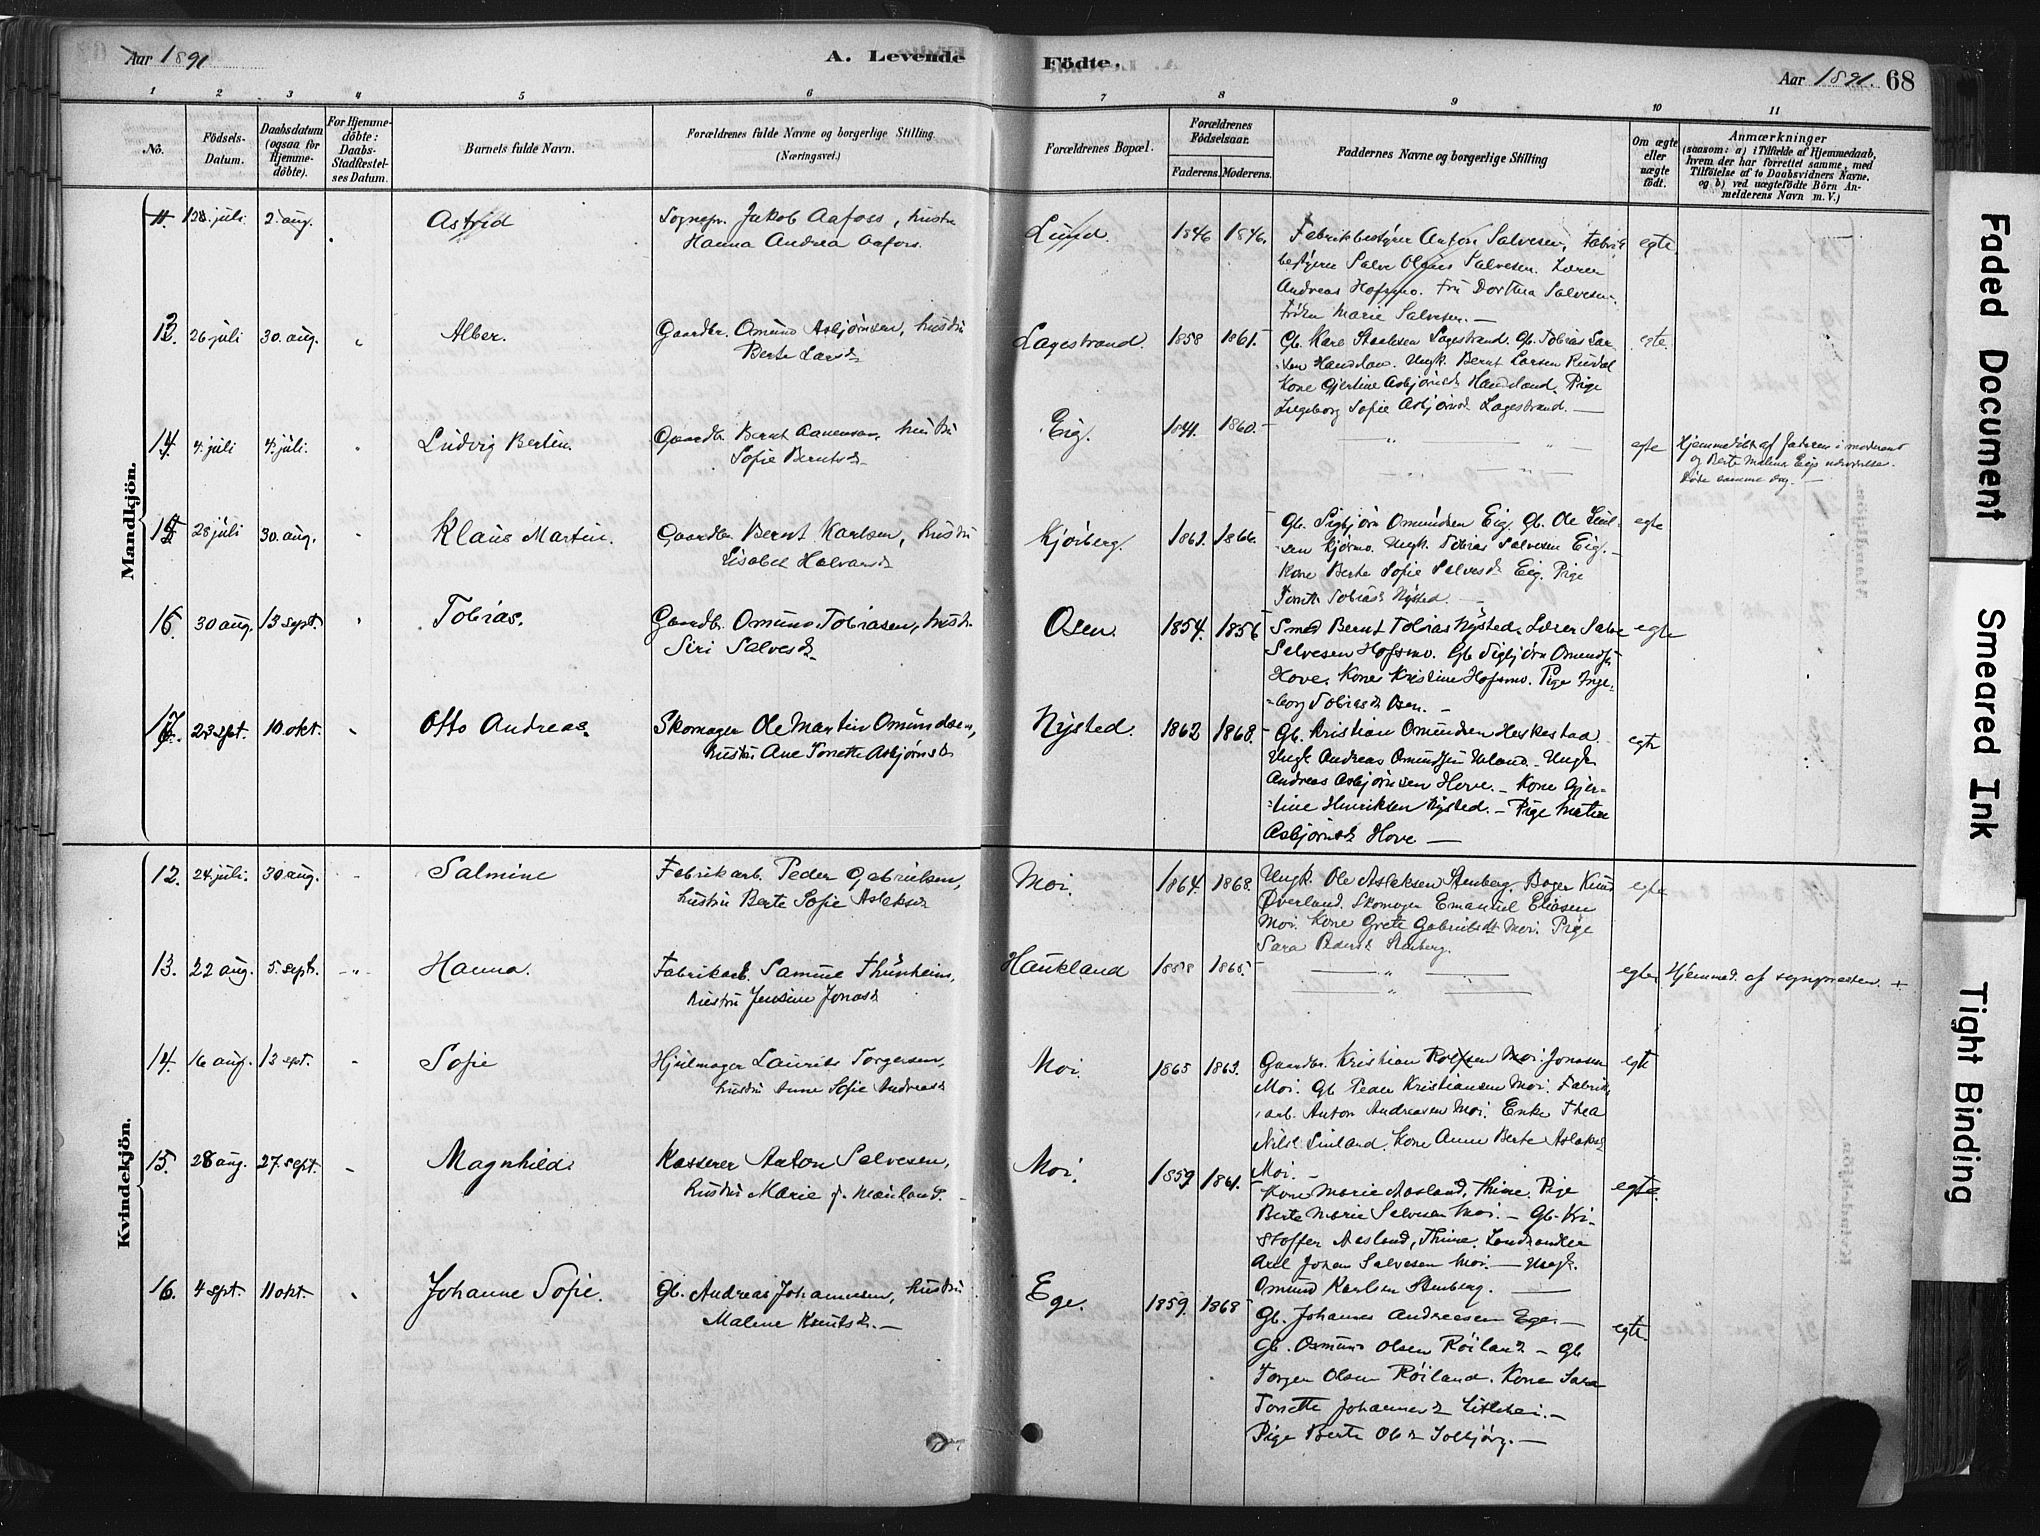 Aar 1891
A. Levende
Födte.
Aar 1891. 68
1 2 3 4 5 6 7 8 9 10 11
No.
Födsels-
Datum.
Daabsdatum
(ogsaa for
Hjemme-
döbte).
For Hjemme-
döbte:
Daabs-
Stadfæstel-
ses Datum.
Barnets fulde Navn.
Forældrenes fulde Navne og borgerlige Stilling
(Næringsvei.)
Forældrenes Bopæl.
Forældrenes
Födselsaar.
Faderens. Moderens.
Faddernes Navne og borgerlige Stilling
Om ægte
eller
uægte
födt.
Anmærkninger
(saasom: a) i Tilfælde af Hjemmedaab,
hvem der har forrettet samme, med
Tilföielse af to Daabsvidners Navne.
og b) ved uægtefödte Börn An-
melderens Navn m. V.)
Mandkjön.
juli 2. aug. Astrid
Sognepr. Jakob Aafoss, hustru
Hanna Andrea Aafoss.
Lund. 1846 1846.
Fabrikbestyrer Anton Salvesen, Fabrik-
bestyrer Salve Olaus Salvesen. Lærer
Andreas Hofsmo. Fru Dorthea Salvesen.
Frøken Marie Salvesen. —
egte
13. 26 juli 30. aug. Alber.
Gaardbr. Omund Asbjørnsen, hustru
Berte Larsd.
Lagestrand. 1858 1861.
Gb. Kare Staalesen Lagestrand. Gb. Tobias Lar-
sen Handeland. Ungk. Bernt Larsen
Kone Gjertine Asbjørnsd. Handeland. Pige
Ingeborg Sofie Asbjørnsd. Lagestrand. —
egte
14. 4. juli 4. juli. Ludvig Bertin.
Gaardbr. Bernt Aanensen, hustru
Sofie Berntsd.
Eig. 1841. 1860.
egte
Hjemmedøbt af faderen i moderens
og Berte Malena Eigs nærværelse.
Døde samme dag. —
15 28 juli 30. aug. Klaus Martin.
Gaardbr. Bernt Karlsen, hustru
Lisabet Halvorsd.
Kjørberg. 1866.
Gb. Sigbjørn Omundsen Eig. Gb. Ole
Kjørmo. Ungk. Tobias Salvesen Eig. —
Kone Berte Sofie Salvesd. Eig. Pige
Tonette Tobiasd. Nysted. —
egte
16. 30 aug. 13 sept. Tobias.
Gaardb. Omund Tobiasen, hustru
Siri Salvesd.
Osen. 1854. 1856
Smed Bernt Tobias Nysted. Lærer Salve
Salvesen Hofsmo. Gb. Sigbjørn Omundsen
Hove. Kone Kristine Hofsmo. Pige Inge-
borg Tobiasd. Osen. —
egte
17. 23 sept. 10. okt. Otto Andreas.
Skomager Ole Martin Omundsen,
hustru Ane Tonette Asbjørnsd.
Nysted. 1862 1868.
Gb. Kristian Omundsen Heskestad
Ungk Andreas Omundsen Ualand. Ungk.
Andreas Asbjørnsen Hove. — Kone Gjer-
tine Henriksen Nysted. — Pige Matea
Asbjørnsd. Hove —
egte
Kvindekjön.
12. 24 juli. 30 aug. Salmine
Fabrikarb. Peder Gabrielsen,
hustru Berte Sofie Aslaksd.
Moi. 1864. 1868.
Ungk. Ole Aslaksen Stenberg. Bager Knud
Øverland. Skomager Emanuel Eliasen
Moi. Kone Grete Gabrielsdt. Moi. Pige
Sara Pedersd. Stenberg.
egte
13. 22 aug. 5. sept. Hanna.
Fabrikarb. Samme Thunheim,
hustru Jensine Jonasd.
Haukland 1865
egte
Hjemmed. af sognepresten. +
14. 16 aug. 13 sept. Sofie
Hjulmager Laurits Torgersen,
hustru Anne Sofie Andreasd
Moi 1865 1863.
Gaardbr. Kristian Rolfsen Moi. Jonasen
Moi. Gb. Peder Kristiansen Moi. Fabrik-
arb. Anton Andreasen Moi. Enke Thea
Nilsd. Sinland. Kone Anne Berte Aslaksd
Moi. —
egte
15. 28 aug. 27. sept. Magnhild.
Kasserer Anton Salvesen,
hustru Marie f. Mauland.
Moi. 1859 1861.
Kone Marie Aasland, Thime. Pige
Berte Marie Salvesen Moi. — Gb. Kri-
stoffer Aasland, Thime. Landhandler
Axel Johan Salvesen Moi. — Ungk.
Omund Karlsen Stenberg. —
egte.
16. 4 sept. 11 okt. Johanne Sofie.
Gb. Andreas Johannesen, hustru
Malene Knutsd. —
Ege. 1859. 1868
Gb. Johannes Andreasen Ege. —
Gb. Osmund Olsen Røiland — Gb
Torger Olsen Røiland. Kone Sara
Tonette Johannesd. —
Pige Berte Olsd. —
egte
Faded Document
Smeared Ink
Tight Binding